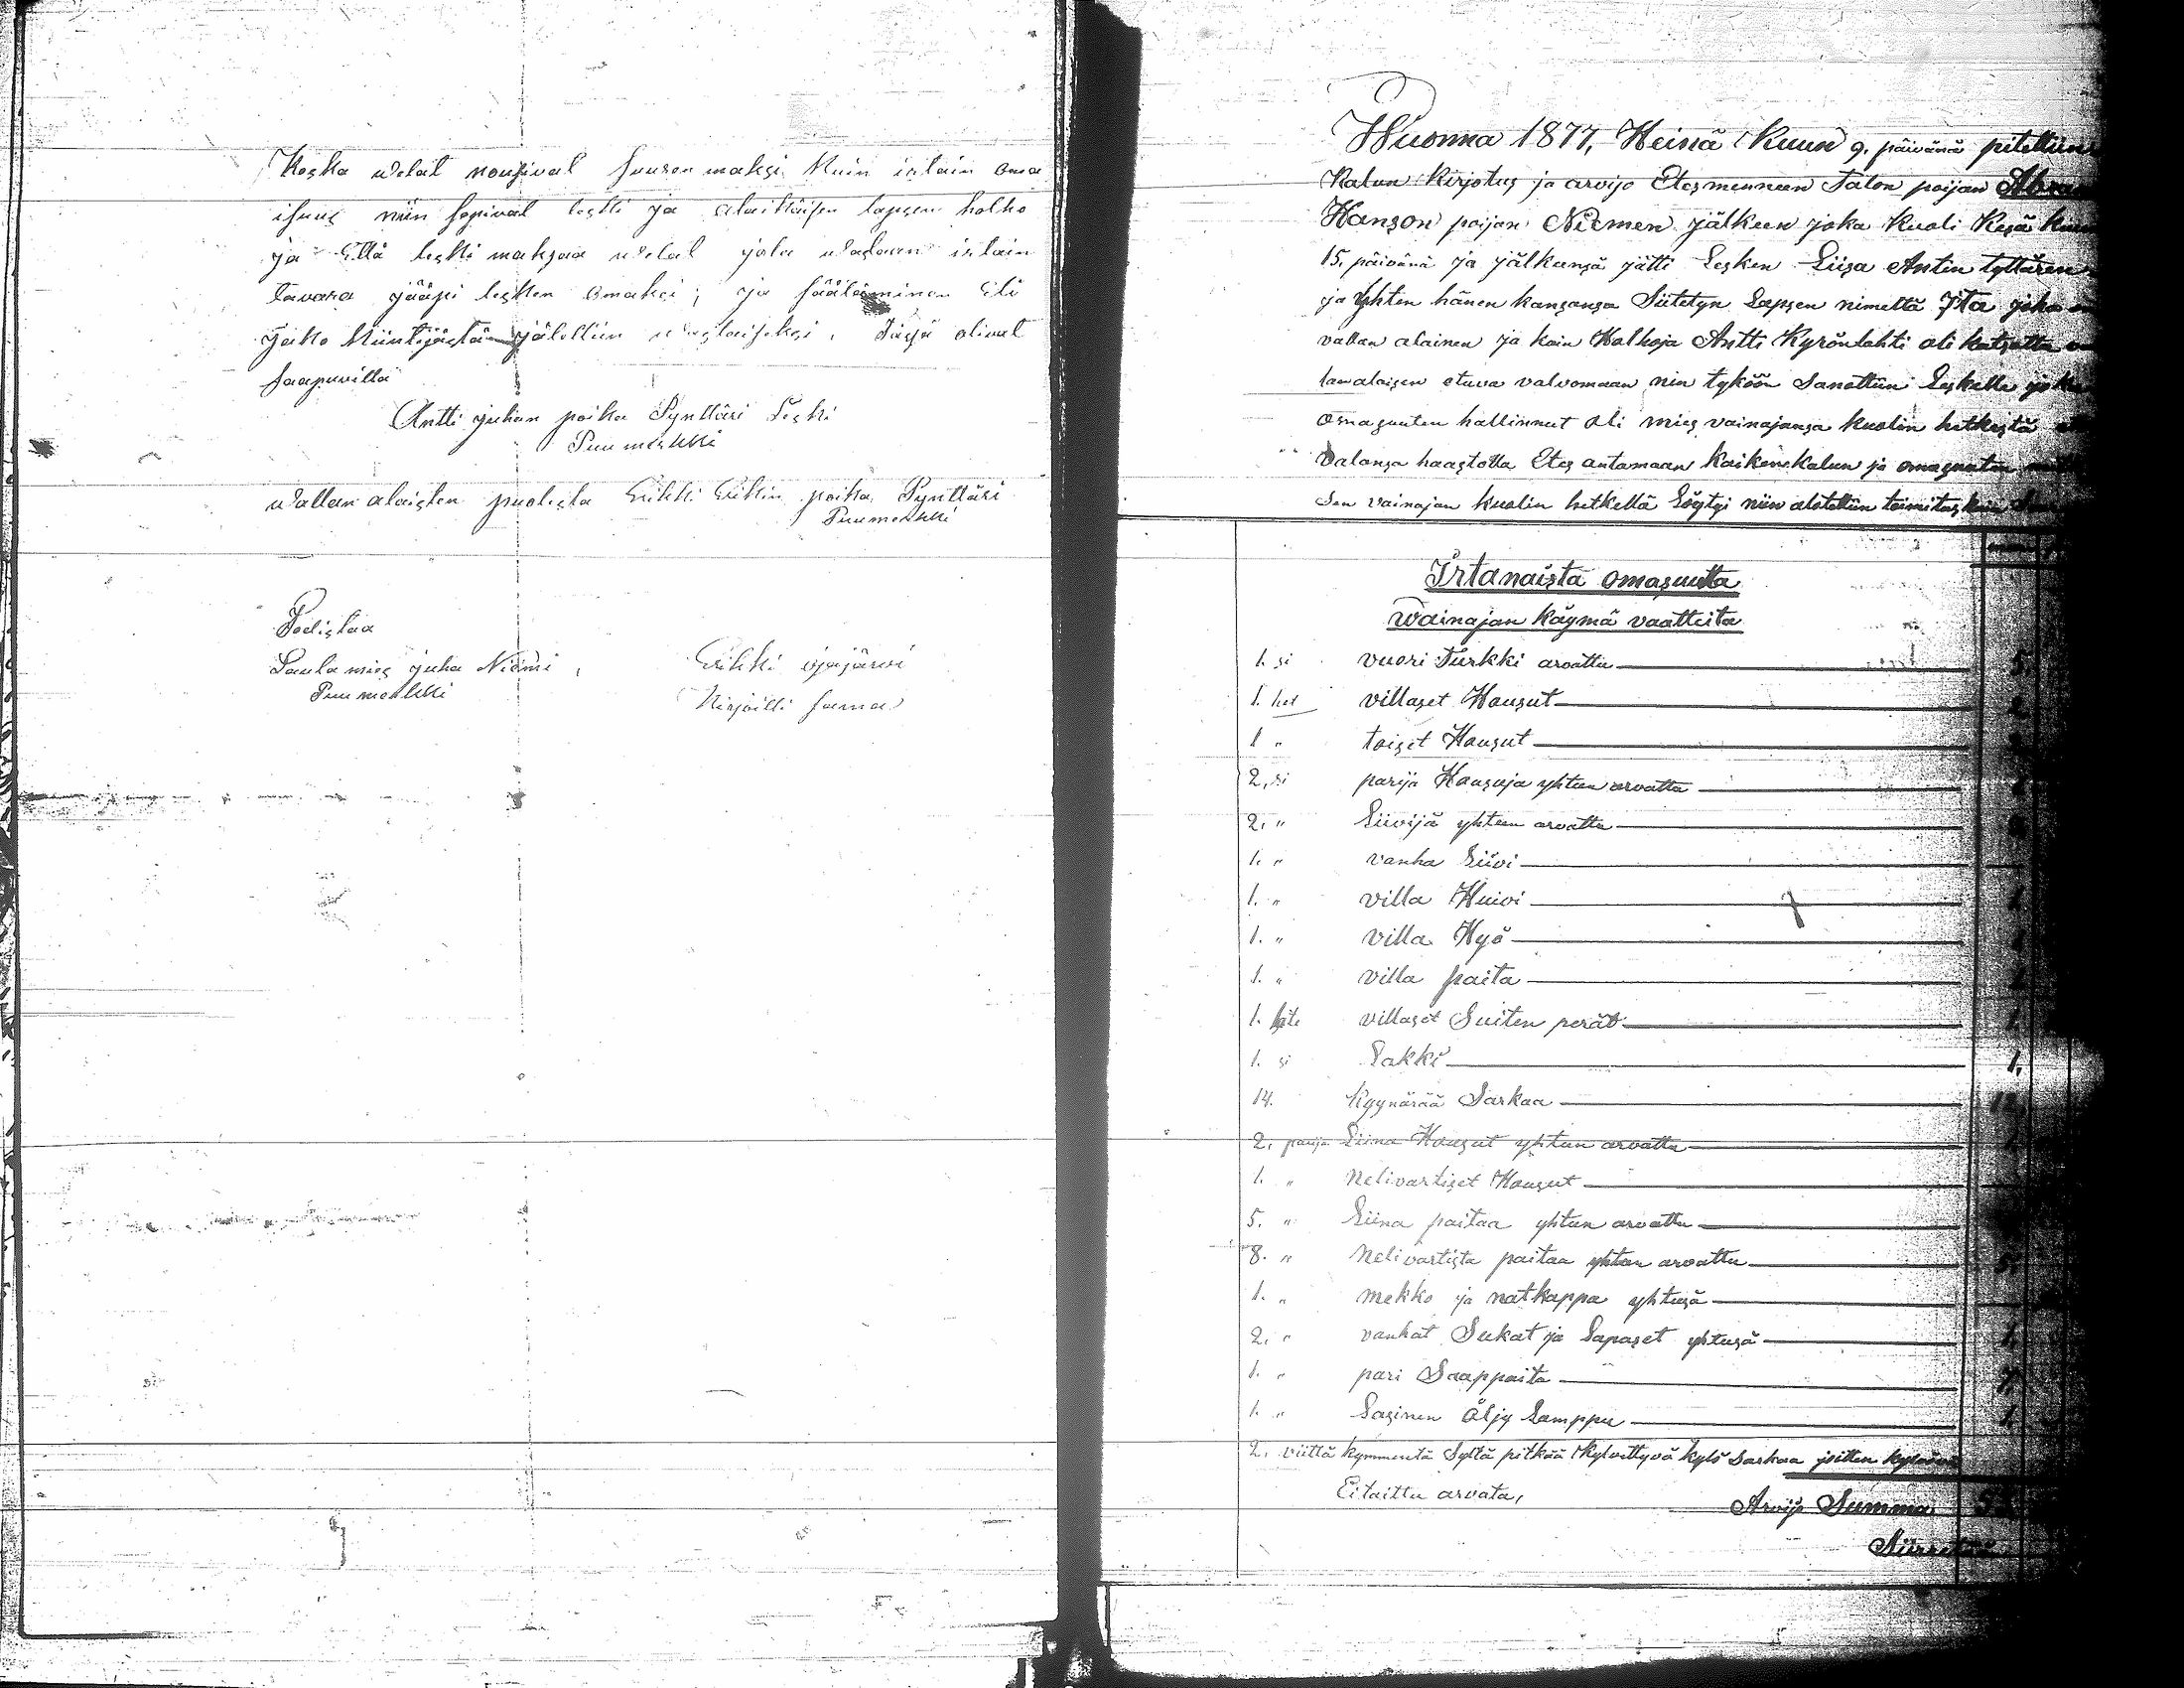 Koska velat nousivat suuremmaksi kuin irtain oma
isuus niin sopivat leski ja alaikäisen lapsen holho
ja että leski maksaa velat jota vastaan irtain
tavara jääpi lesken omaksi; ja säätäminen eli
jako kiintijästä jätettiin vastaiseksi. Tässä olivat
saapuvilla
Antti juhan poika Pynttäri Leski
Puumerkki
vallan alaisten puolesta Erikki Erikin poika Pynttäri
Puumerkki
Todistaa
Lautamies juha Niemi,
Puumerkki
Erikki
Kirjoitti sama
Wuonna 1877, Heinä Kuun 9. päivänä pitettiin
Kalun Kirjotus ja arvijo Etesmenneen Talon poijan
Hanson poijan Niemen jälkeen joka kuoli Kesä kuun
15. päivänä ja jälkeensä jätti Lesken Liisa Antin tyttären
ja Yhten hänen kansansa Siitetyn Lapsen nimeltä Ita joka
vallan alainen ja kain Holhoja Antti Kyrönlahti oli katsottu
lanalaisen etuva valvomaan nin tyköön Sanottiin Leskelle joka
Omasuuten hallinnut oli mies vainajansa kuolin hetkestä
Valansa haastolla Etes antamaan kaiken kalun ja omasuuten
Sen vainajan kuolin hetkellä Löytyi niin alotettiin toimitus kuin
Irtanaista omasuutta
Wainajan käymä vaatteita
1. si vuori Turkki arvattu 5.
1. het villaset Housut 2
1 " toiset Housut
2, si parija Housuja yhteen arvattu
2. " Liivijä yhteen arvattu
1. " vanha Liivi
1. " villa Huivi 1.
1. " villa Wyö
1. " villa paita
1. villaset Suiten perät 1.
1. si Lakki 1.
14. Kyynärää Sarkaa
2. parija Liina Housut yhteen arvattu
1. " Nelivartiset Housut
5. " Liina paitaa yhteen arvattu
8. " Nelivartista paitaa yhteen arvattu 5.
1. " mekko ja natkappa yhtesä
2. " vanhat Sukat ja Lapaset yhtesä 1.
1. " pari Saappaita 7.
1. " Lasinen Öljy Lamppu 1.
2. viittä kymmentä Syltä pitkää Kylvettyvä kytö Sarkaa joitten
Ei taittu arvata,
Arvijo Summa